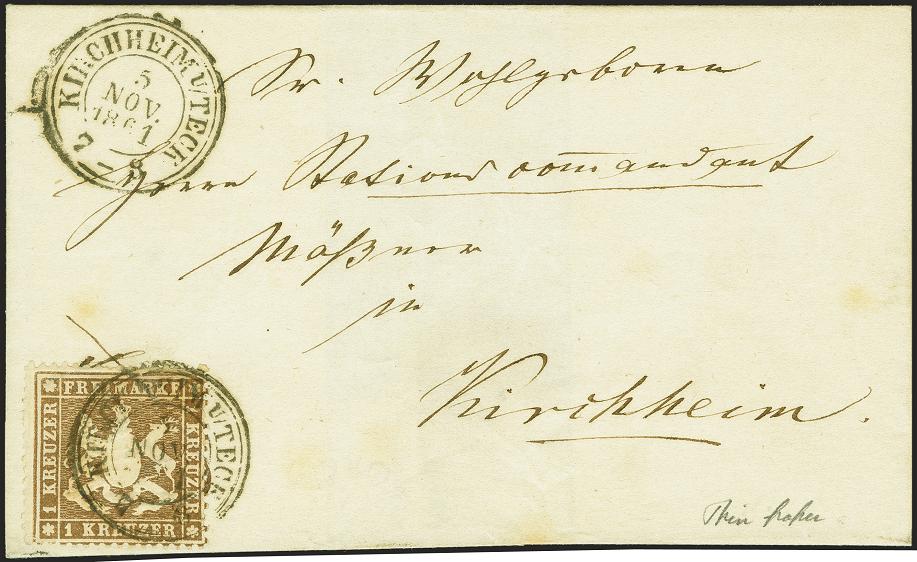 KIRCHHEIM U/TECK
5
NOV.
1861
7-8
Sr. Wohlgeboren
Herrn Stationscommandant
Mößner
in
Kirchheim.
FREIMARKE
1 KREUZER
1 KREUZER
KREUZER
KIRCHHEIM U/TECK
NOV
Thin paper